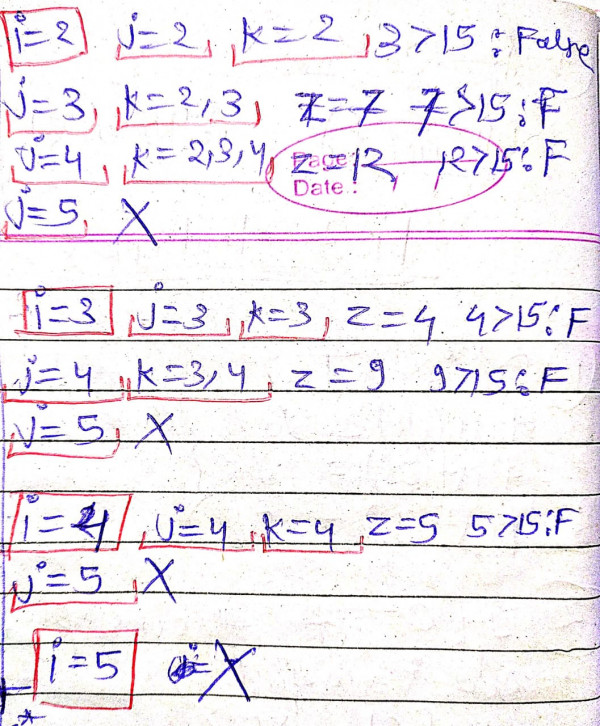 i=2 j=2 k=2 3>15:False
j=3 k=2,3 z=7 7>15:F
j=4 k=2,3,4 z=12 12>15:F
Page
Date :
j=5 X
i=3 j=3 k=3 z=4 4>15:F
j=4 k=3,4 z=9 9>15:F
j=5 X
i=4 j=4 k=4 z=5 5>15:F
j=5 X
i=5 X
*